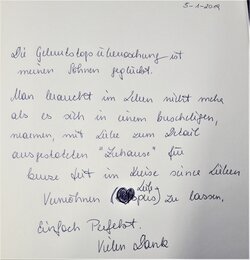 5-1-2019
Die Geburtstags überraschung ist
meinen Söhnen geglückt.
Man braucht im Leben nicht mehr
als es sich in einem kuscheligen,
warmen, mit Liebe zum Detail
ausgestatteten "Zuhause" für
kurze Zeit im Kreise seine Lieben
Verwöhnen zu lassen,
Einfach Perfekt.
Vielen Dank